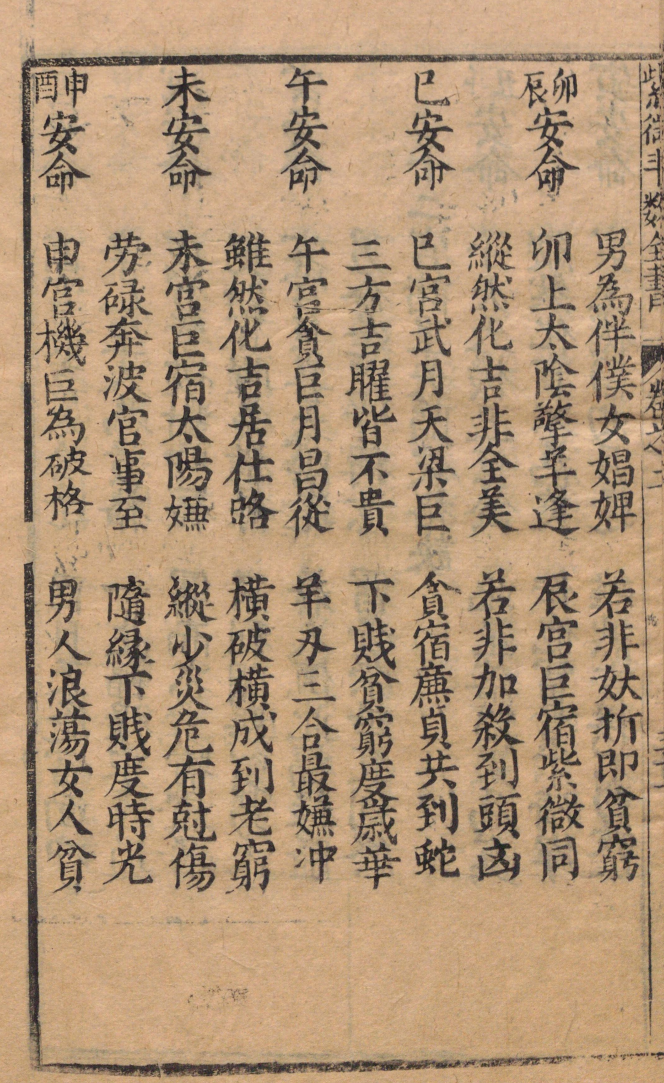 紫微斗數全書 卷之二
男為伴僕女娼婢 若非妖折即貧窮
卯辰安命 卯上太陰擎羊逢 辰宮巨宿紫微同
縱然化吉非全美 若非加殺到頭凶
巳安命 巳宮武月天梁巨 貪宿廉貞共到蛇
三方吉曜皆不貴 下賤貧窮度歲華
午安命 午宮貪巨月昌從 羊刃三合最嫌冲
雖然化吉居仕路 橫破橫成到老窮
未安命 未宮巨宿太陽嫌 縱少災危有尅傷
勞碌奔波官事至 隨緣下賤度時光
申酉安命 申宮機巨為破格 男人浪蕩女人貧